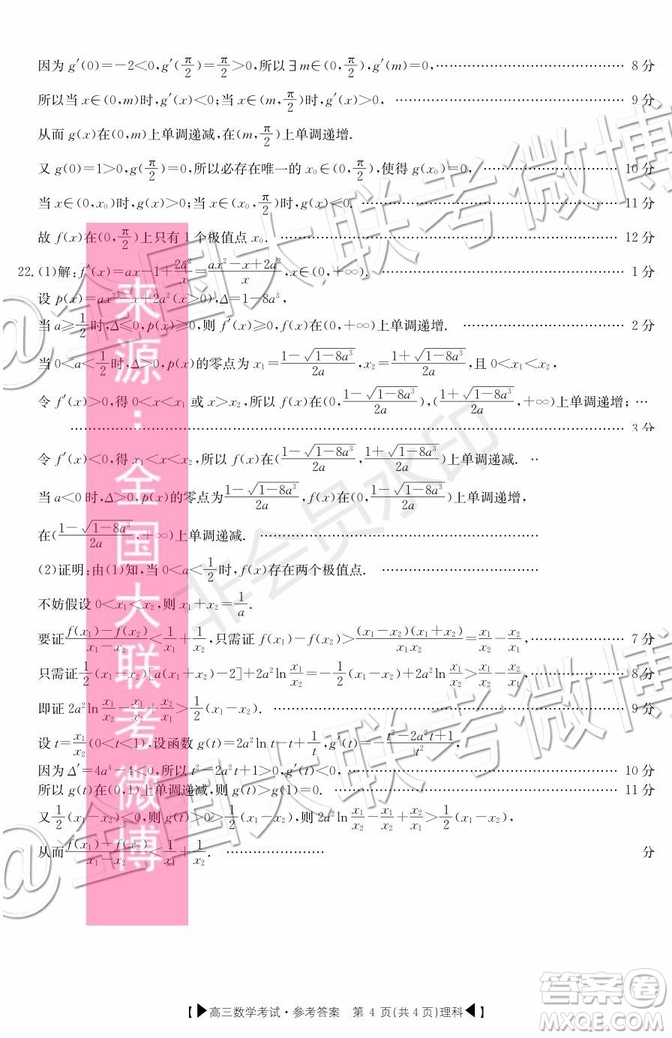 因为 g′(0)=-2<0,g′(π/2)=π/2>0,所以∃m∈(0,π/2),g′(m)=0, 8 分
所以当 x∈(0,m)时,g′(x)<0;当 x∈(m,π/2)时,g′(x)>0, 9 分
从而 g(x)在(0,m)上单调递减,在(m,π/2)上单调递增.
又 g(0)=1>0,g(π/2)<0,所以必存在唯一的 x₀∈(0,π/2),使得 g(x₀)=0. 10 分
当 x∈(0,x₀)时,g(x)>0;当 x∈(x₀,π/2)时,g(x)<0. 11 分
故 f(x)在(0,π/2)上只有 1 个极值点 x₀. 12 分
22.(1)解:f′(x)=ax-1+2a²/x=(ax²-x+2a²)/x,x∈(0,+∞). 1 分
设 p(x)=ax²-x+2a²(x>0),Δ=1-8a³,
当 a≥1/2时,Δ≤0,p(x)≥0,则 f′(x)≥0,f(x)在(0,+∞)上单调递增. 2 分
当 0<a<1/2时,Δ>0,p(x)的零点为 x₁=(1-√(1-8a³))/2a,x₂=(1+√(1-8a³))/2a,且 0<x₁<x₂,
令 f′(x)>0,得 0<x<x₁ 或 x>x₂,所以 f(x)在(0,(1-√(1-8a³))/2a),((1+√(1-8a³))/2a,+∞)上单调递增;
3 分
令 f′(x)<0,得 x₁<x<x₂,所以 f(x)在((1-√(1-8a³))/2a,(1+√(1-8a³))/2a)上单调递减.
当 a<0 时,Δ>0,p(x)的零点为(1-√(1-8a³))/2a,f(x)在(0,(1-√(1-8a³))/2a)上单调递增,
在((1-√(1-8a³))/2a,+∞)上单调递减.
(2)证明:由(1)知,当 0<a<1/2时,f(x)存在两个极值点.
不妨假设 0<x₁<x₂,则 x₁+x₂=1/a.
要证(f(x₁)-f(x₂))/(x₁-x₂)<1/x₁+1/x₂,只需证 f(x₁)-f(x₂)>(x₁-x₂)(x₁+x₂)/x₁x₂=x₁/x₂-x₂/x₁, 7 分
只需证1/2(x₁-x₂)[a(x₁+x₂)-2]+2a²ln x₁/x₂=-1/2(x₁-x₂)+2a²ln x₁/x₂>x₁/x₂-x₂/x₁, 8 分
即证 2a²ln x₁/x₂-x₁/x₂+x₂/x₁>1/2(x₁-x₂). 9 分
设 t=x₁/x₂(0<t<1),设函数 g(t)=2a²ln t-t+1/t,g′(t)=-(t²-2a²t+1)/t²,
因为 Δ′=4a⁴-4<0,所以 t²-2a²t+1>0,g′(t)<0. 10 分
所以 g(t)在(0,1)上单调递减,则 g(t)>g(1)=0. 11 分
又1/2(x₁-x₂)<0,则 g(t)>0>1/2(x₁-x₂),则 2a²ln x₁/x₂-x₁/x₂+x₂/x₁>1/2(x₁-x₂),
从而(f(x₁)-f(x₂))/(x₁-x₂)<1/x₁+1/x₂. 分
来源：全国大联考微博
@全国大联考微博
@全国大联考微博
非会员水印
答案圈
【▶高三数学考试·参考答案 第 4 页(共 4 页)理科◀】